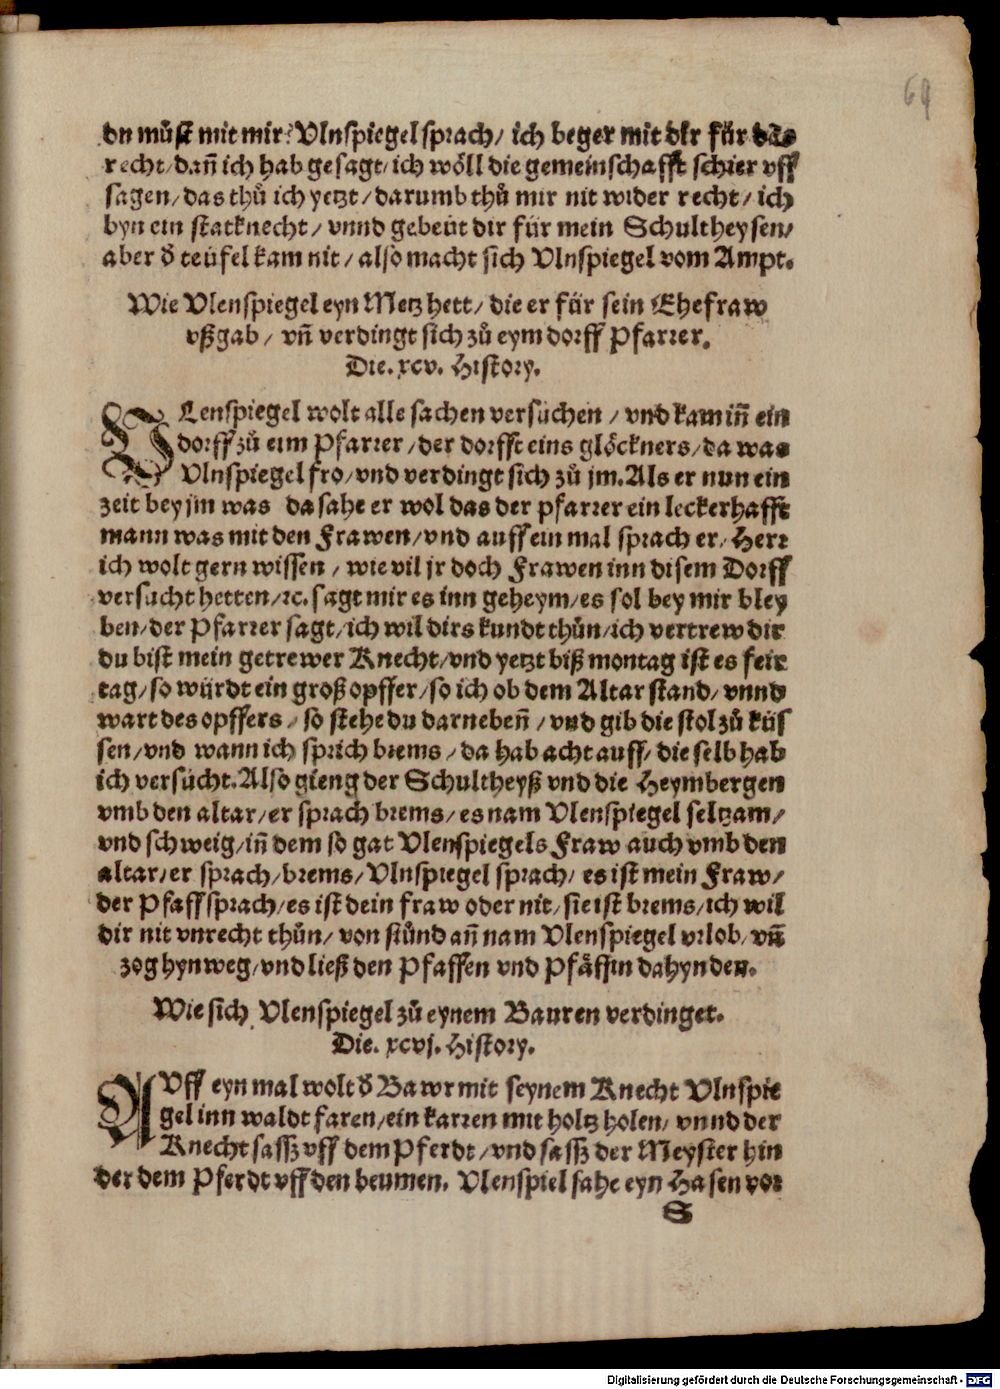 69
du müst mit mir? Vlnspiegel sprach/ ich beger mit dir für das
recht/dañ ich hab gesagt/ich wöll die gemeinschafft schier vff
sagen/das thů ich yetzt/darumb thů mir nit wider recht/ich
byn ein statknecht/vnnd gebeüt dir für mein Schultheysen/
aber d̓ teüfel kam nit/also macht sich Vlnspiegel vom Ampt.
Wie Vlenspiegel eyn Metz hett/die er für sein Ehefraw
vßgab/vñ verdingt sich zů eym dorff Pfarrer.
Die. xcv. History.
VLenspiegel wolt alle sachen versuchen/vnd kam iñ ein
dorff zů eim Pfarrer/der dorfft eins glöckners/da was
Vlnspiegel fro/vnd verdingt sich zů jm. Als er nun ein
zeit bey jm was da sahe er wol das der pfarrer ein leckerhafft
mann was mit den Frawen/vnd auff ein mal sprach er/Herr
ich wolt gern wissen/wie vil jr doch Frawen inn disem Dorff
versucht hetten/ꝛc. sagt mir es inn geheym/es sol bey mir bley
ben/der Pfarrer sagt/ich wil dirs kundt thůn/ich vertrew dir
du bist mein getrewer Knecht/vnd yetzt biß montag ist es feir
tag/so würdt ein groß opffer/so ich ob dem Altar stand/vnnd
wart des opffers/so stehe du darnebeñ/vnd gib die stol zů küs
sen/vnd wann ich sprich brems/da hab acht auff/die selb hab
ich versůcht. Also gieng der Schultheyß vnd die Heymbergen
vmb den altar/er sprach brems/es nam Vlenspiegel seltzam/
vnd schweig/iñ dem so gat Vlenspiegels Fraw auch vmb den
altar/er sprach/brems/Vlnspiegel sprach/es ist mein Fraw/
der Pfaff sprach/es ist dein fraw oder nit/sie ist brems/ich wil
dir nit vnrecht thůn/von stünd añ nam Vlenspiegel vrlob/vñ
zog hynweg/vnd ließ den Pfaffen vnd Pfäffin dahynden.
Wie sich Vlenspiegel zů eynem Bauren verdinget.
Die. xcvj. History.
AVff eyn mal wolt d̓ Bawr mit seynem Knecht Vlnspie
gel inn waldt faren/ein karren mit holtz holen/vnnd der
Knecht sassz vff dem Pferdt/vnd sassz der Meyster hin
der dem Pferdt vff den beumen. Vlenspiel sahe eyn Hasen vor
S
Digitalisierung gefördert durch die Deutsche Forschungsgemeinschaft - DFG